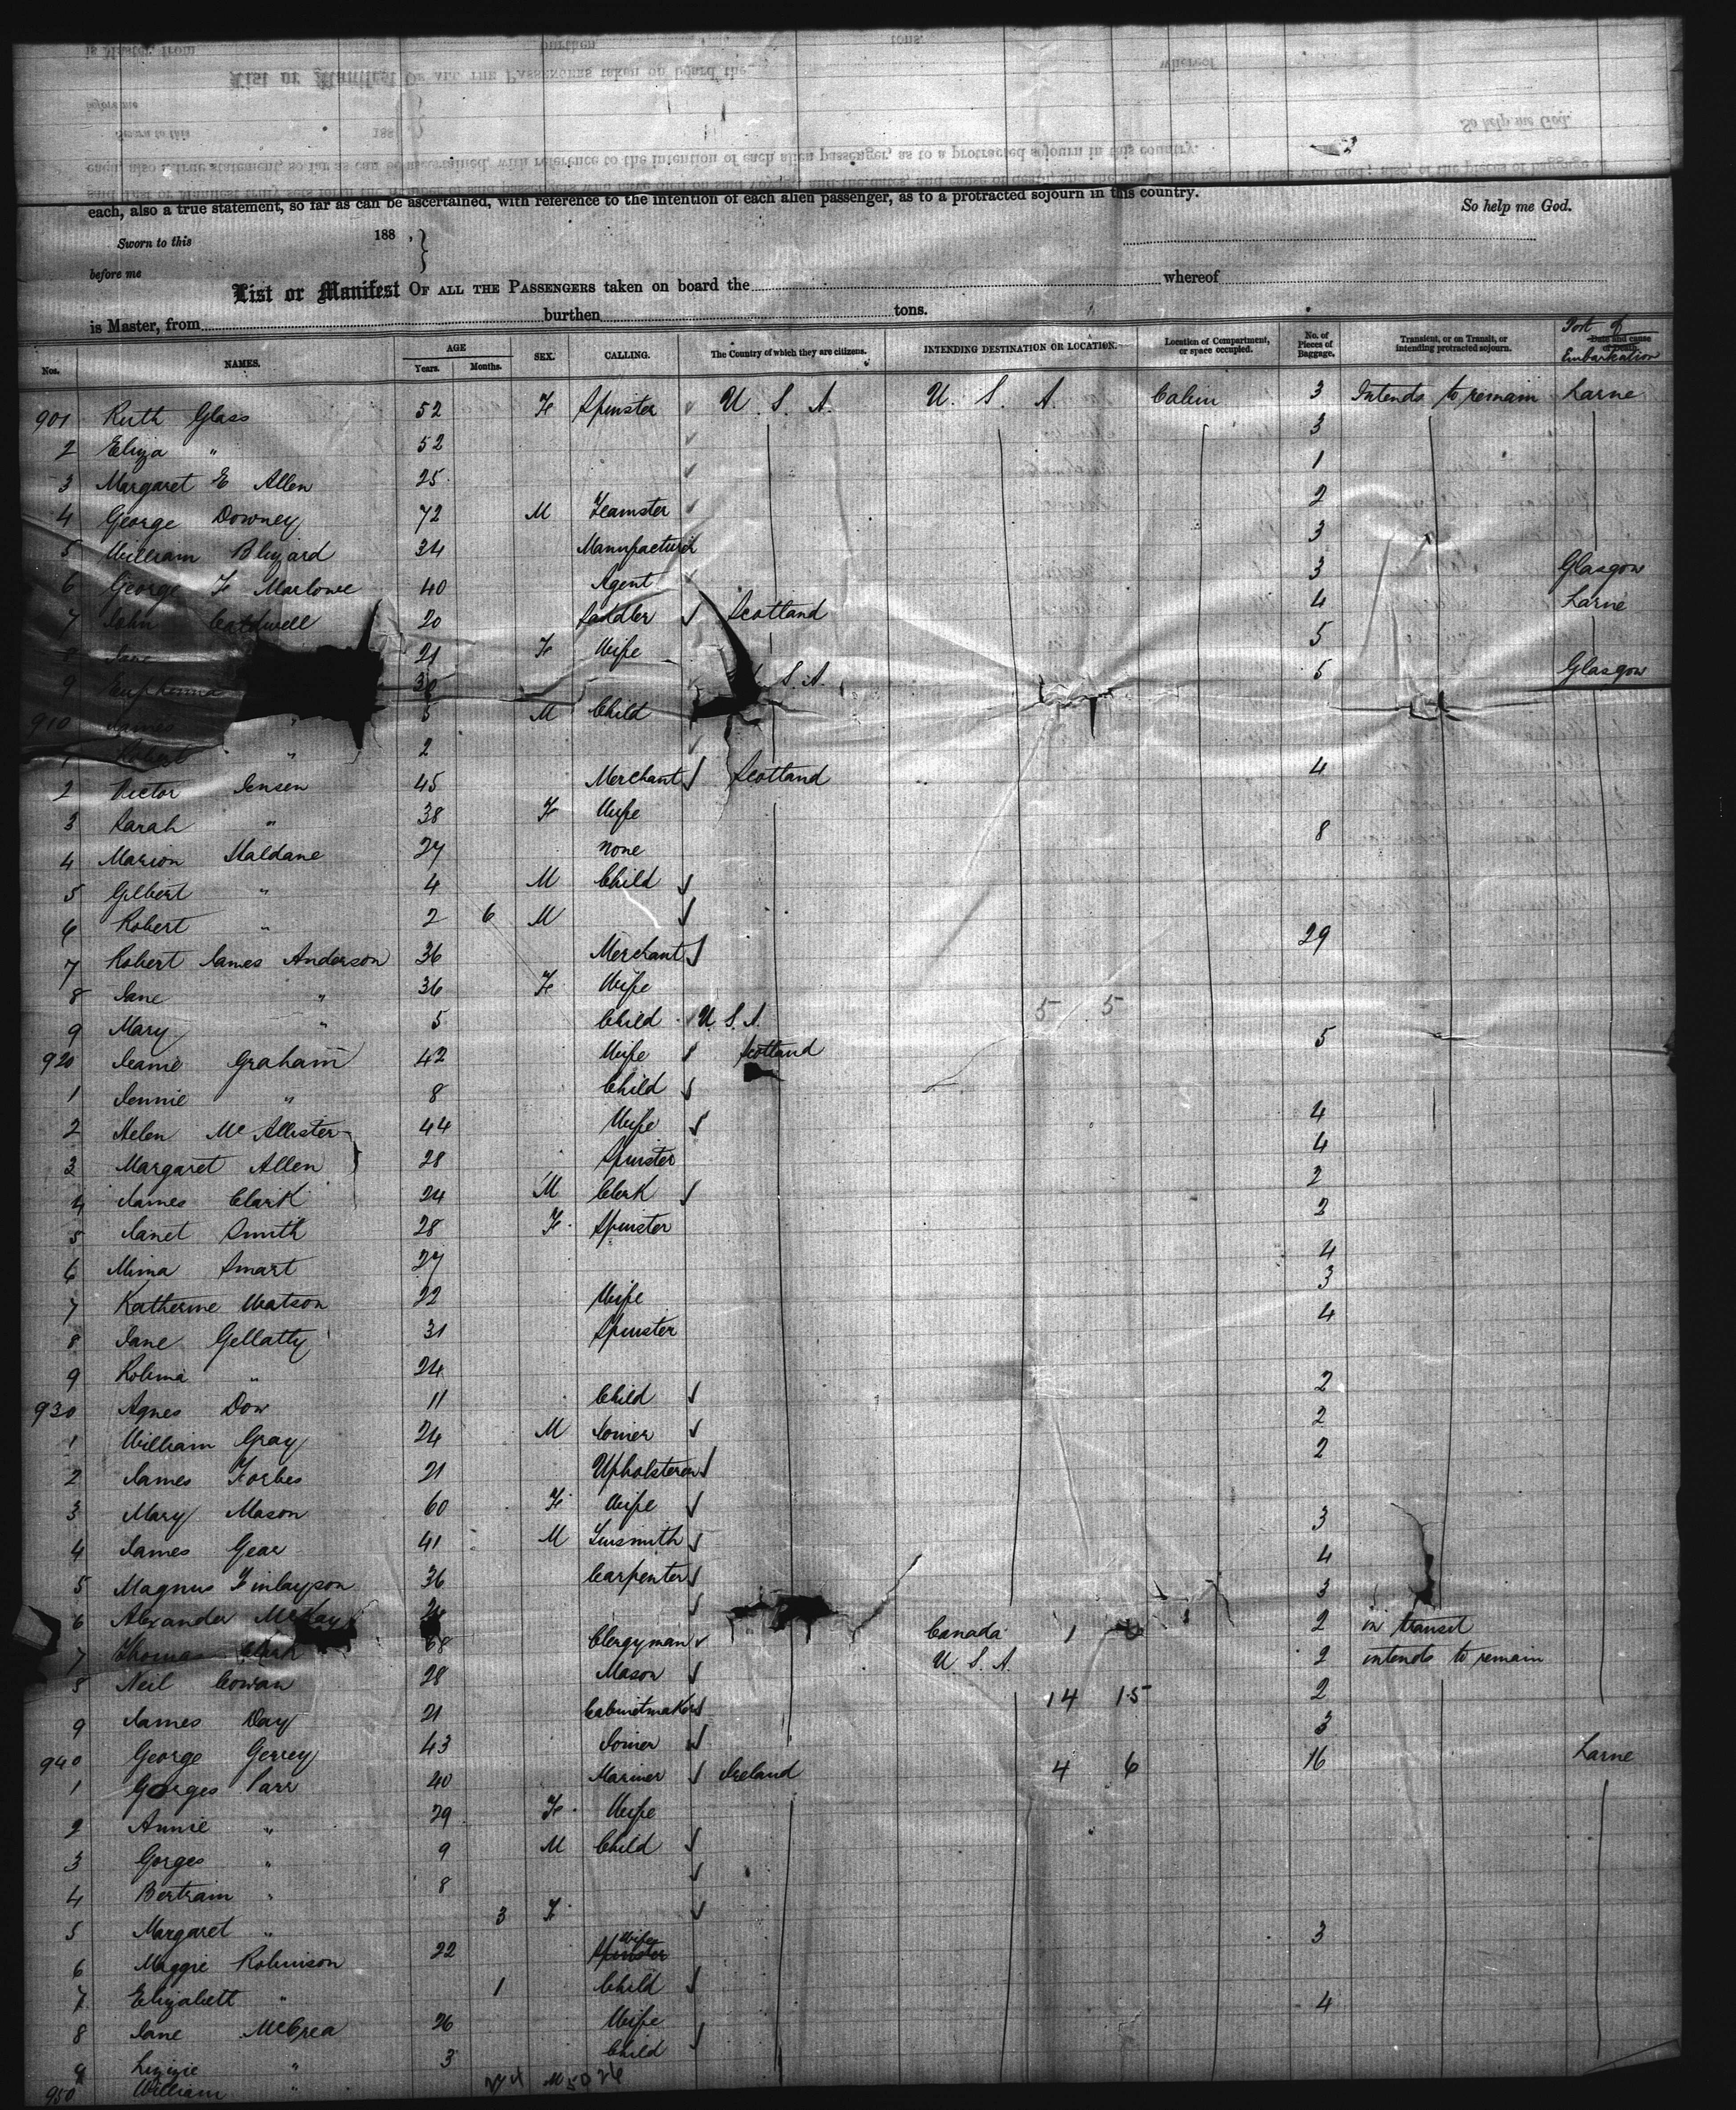 each, also a true statement, so far as can be ascertained, with reference to the intention of each alien passenger, as to a protracted sojourn in this country. So help me God.
Sworn to this 188 ,
before me
List or Manifest OF ALL THE PASSENGERS taken on board the whereof
is Master, from burthen tons.
Nos. NAMES. AGE Years. Months. SEX. CALLING. The Country of which they are citizens. INTENDING DESTINATION OR LOCATION. Location of Compartment, or space occupied. No. of Pieces of Baggage. Transient, or on Transit, or intending protracted sojourn. Port of Embarkation Date and cause of Death.
901 Ruth Glass 52 F Spinster U. S. A. U. S. A. Cabin 3 Intends to remain Larne
2 Eliza " 52 3
3 Margaret E Allen 25 1
4 George Downey 72 M Teamster 2
5 William Blizard 34 Manufacturer 3
6 George F Marlowe 40 Agent 3 Glasgow
7 John Caldwell 20 Saddler Scotland 4 Larne
8 Jane 21 F Wife 5
9 Euphemia 30 S. A. 5 Glasgow
910 James " 5 M Child
1 Robert " 2
2 Victor Jensen 45 Merchant Scotland 4
3 Sarah " 38 F Wife
4 Marion Haldane 27 none 8
5 Gilbert " 4 M Child
6 Robert " 2 6 M
7 Robert James Anderson 36 Merchant 29
8 Jane " 36 F Wife
9 Mary " 5 Child U. S. A. 5 5
920 Jeanie Graham 42 Wife Scotland 5
1 Jennie " 8 Child
2 Helen McAllister 44 Wife 4
3 Margaret Allen 28 Spinster 4
4 James Clark 24 M Clerk 2
5 Janet Smith 28 F Spinster 2
6 Mima Smart 27 4
7 Katherine Watson 22 Wife 3
8 Jane Gellatly 31 Spinster 4
9 Robina " 24
930 Agnes Dow 11 Child 2
1 William Gray 24 M Joiner 2
2 James Forbes 21 Upholsterer 2
3 Mary Mason 60 F Wife
4 James Gear 41 M Tinsmith 3
5 Magnus Finlayson 36 Carpenter 4
6 Alexander McKay 3
7 Thomas 68 Clergyman Canada 1 2 in transit
8 Neil Cowan 28 Mason U. S. A. 2 intends to remain
9 James Day 21 Cabinetmaker 14 15 2
940 George Gerrey 43 Joiner 3
1 Georges Parr 40 Mariner Ireland 4 6 16 Larne
2 Annie " 29 F Wife
3 Gorges " 9 M Child
4 Bertram " 8
5 Margaret " 3 F
6 Maggie Robinson 22 Spinster Wife 3
7 Elizabeth " 1 Child
8 Jane McCrea 26 Wife 4
9 Lizzie " 3 Child
950 William " M